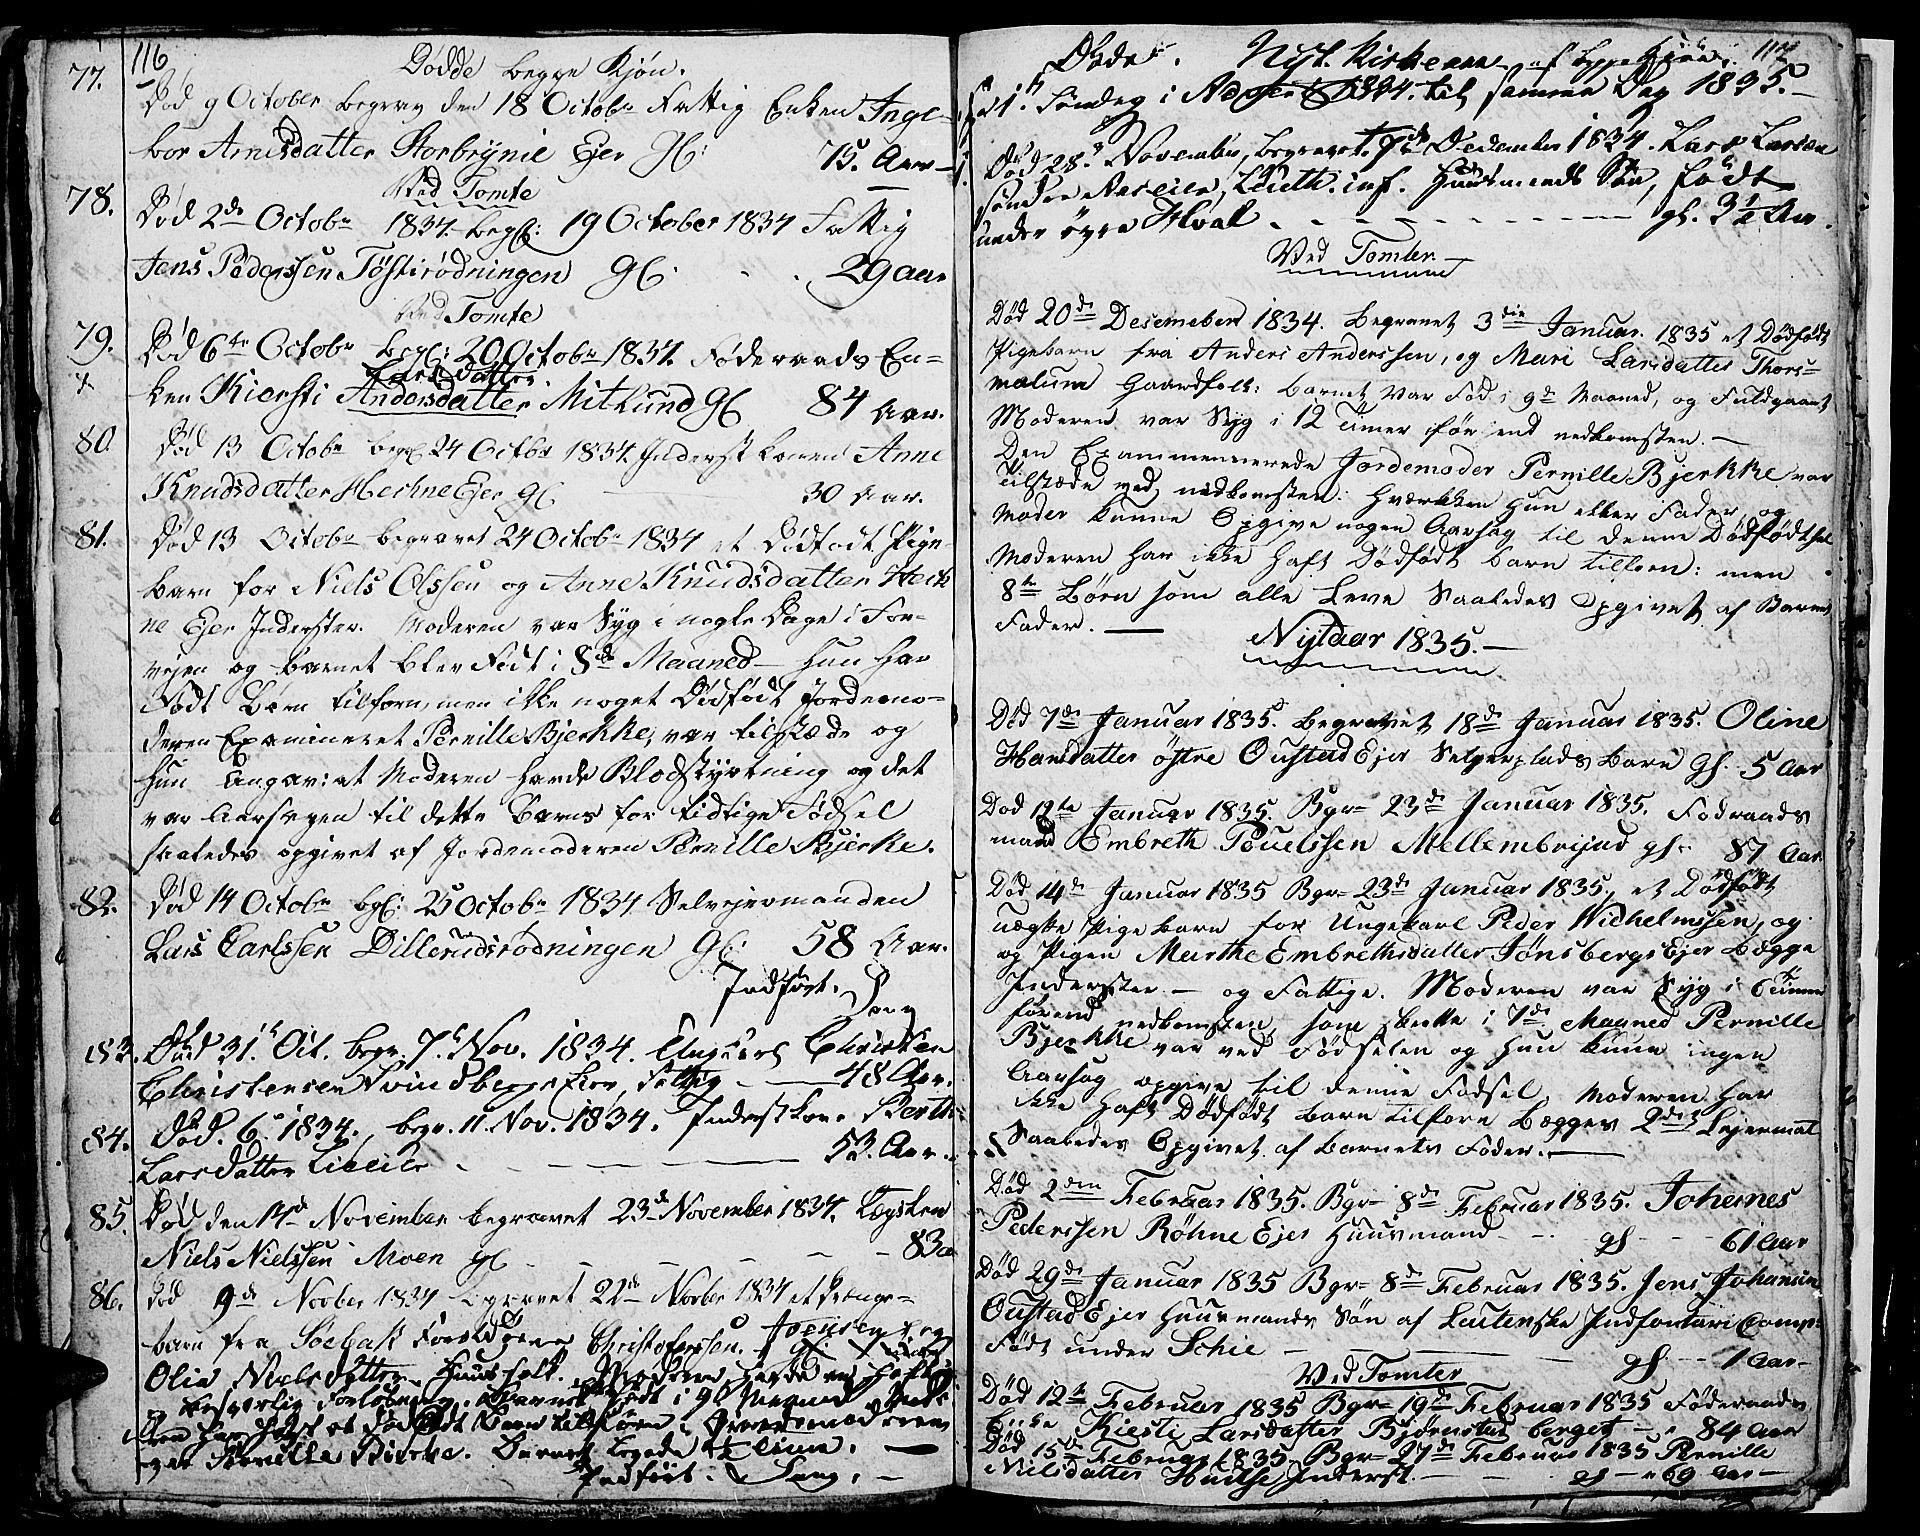 116
Dödde begge Kjön.
77.
Död 9 October begrav den 18 Octobr Fattig Enken Inge-
bor Arnesdatter Storbrynie Ejer Gl: 75. Aar
Ved Tomte
78.
Död 2de Octobr 1834 begl: 19 October 1834 Fattig
Jens Pederssen Töstirödningen Gl. 29 aar
Ved Tomte
79.
Död 6te Octobr begl: 20 Octobr 1834 Föderaads En-
Larsdatter
x
ken Kiersti Andersdatter Mitlund Gl 84 Aar.
80.
Död 13 Octobr begl 24 Octbr 1834 Inderst konen Anne
Knudsdatter Hechne Ejer gl 30 Aar.
81.
Död 13 Octobr begravet 24 Octobr 1834 et Dödfödt Pige-
barn for Niels Olssen og Anne Knudsdatter Hech
ne Ejer Inderster. Moderen var Syg i nogle Dage i For-
vejen og barnet blev Född i 8de Maaned - Hun har
Födt Börn tilforn, men ikke noget Dödfödt Jordemo-
deren Examineret Pernille Bjerkke, var tilstæde og
Hun Angav: at Moderen havde Blodstyrtning og det
var Aarsagen til dette Barns for tidtige Födsel
saaledes opgivet af Jordemoderen Pernille Bjerke.
82.
Död 14 Octobr begl: 25 Octobr 1834 Selvejermanden
Lars Carlssen Dillerudsrödningen Gl: 58 Aar.
Indfört.
183.
Död 31. Oct. begr. 7. Nov. 1834. Christen
Christensen Svindberge Eier, Fattig 48 Aar.
84.
Död. 6. 1834, begr. 11. Nov. 1834. Inderstkone Berthe
Larsdatter Lieeie 53. Aar.
85.
Död den 14d November begravet 23de November 1834. Lægsken
Niels Nielssen Moen gl - - - 83 a
86.
Död 9de Novber 1834 begravet 22de Novber 1834 et Drenge-
barn fra Christoferssen og
Olia Nielsdatter Huusfolk. Moderen havde en
besværlig Forlösning, Barnet född i 9de Maaned
har havt et Dödfödt Barn tilforn, Jordemoderen
var Pernille Bierke. Barnet levede ½ Time. -
Indfört.
117
Döde. Nyt Kirkeaar af begge Kiön.
fra 1. Söndag i Advent 1834. til samme Dag 1835. -
1.
Död 28. November, begravet 7de December 1834. Lars Larsen
söndre Aaseier, Huusmands Sön, född
under öyre Hval - - - gl. 3½ Aar.
Ved Tomter
Död 20de Desemeberd 1834. begravet 3die Januar. 1835 et Dödfödt
Pigebarn fra Anders Anderssen, og Mari Larsdatter Thors-
malum Gaardfolk: barnet var Född i 9de Maaned, og Fuldgaaet
Moderen var Syg i 12 Timer för end nedkomsten. -
Den Exammennerede Jordemoder Pernille Bjerkke var
tilstæde ved nedkomsten: Hværkken Hun eller Fader, og
Moder kunne Opgive nogen Aarsag til denne Dödfödthet
Moderen har ikke Haft Dödfödt barn tilforn: men
8te Börn som alle Leve Saaledes Opgivet af Barnets
Fader. -
Nytaar 1835. -
Död 7de Januar 1835. begravet 18de Januar 1835. Oline
Hansdatter östre Oustad Ejer Selvejerplads barn gl. 5 Aar
Död 12te Januar 1835. Bgr- 23de Januar 1835. Födraads
mand Embreth Pouelssen Mellembryud gl. 87 Aar
Död 14de Januar 1835 Bgr- 23de Januar 1835. et Dödfödt
uægte Pigebarn for Ungekarl Peder Wilhelmssen, og
og Pigen Marthe Embrethsdatter Tönsbergs Ejer Bægge
Inderster - og Fattige. Moderen var Syg i 6 Timer
förend nedkomsten, som skette i 7de Maaned Pernille
Bjerkke var ved Födselen og Hun kunne ingen
Aarsag opgive til denne Födsel, Moderen har
ikke Haft Dödfödt barn tilforn Bægges 2det Lejermal
Saaledes Opgivet af Barnets Fader. -
Död 2den Februar 1835. Bgr- 8de Februar 1835. Johannes
Pederssen Röhne Ejer Huusmand - gl - 61 Aar
Död 29de Januar 1835 Bgr- 8de Februar 1835. Jens Johansen
Oustad Ejer Huusmands Sön af Leutenske Infonteri Comp:
Födt under Schie - gl - 1 Aar-
Ved Tomter
Död 12te Februar 1835 Bgr- 19de Februar 1835 Föderaads
Enke Kiesti Larsdatter Björnstad berget - 84 Aar
Död 15de Februar 1835 Bgr- 27de Februar 1835 Pernille
Nielsdatter Huitse Inderst. - gl - 69 Aar -